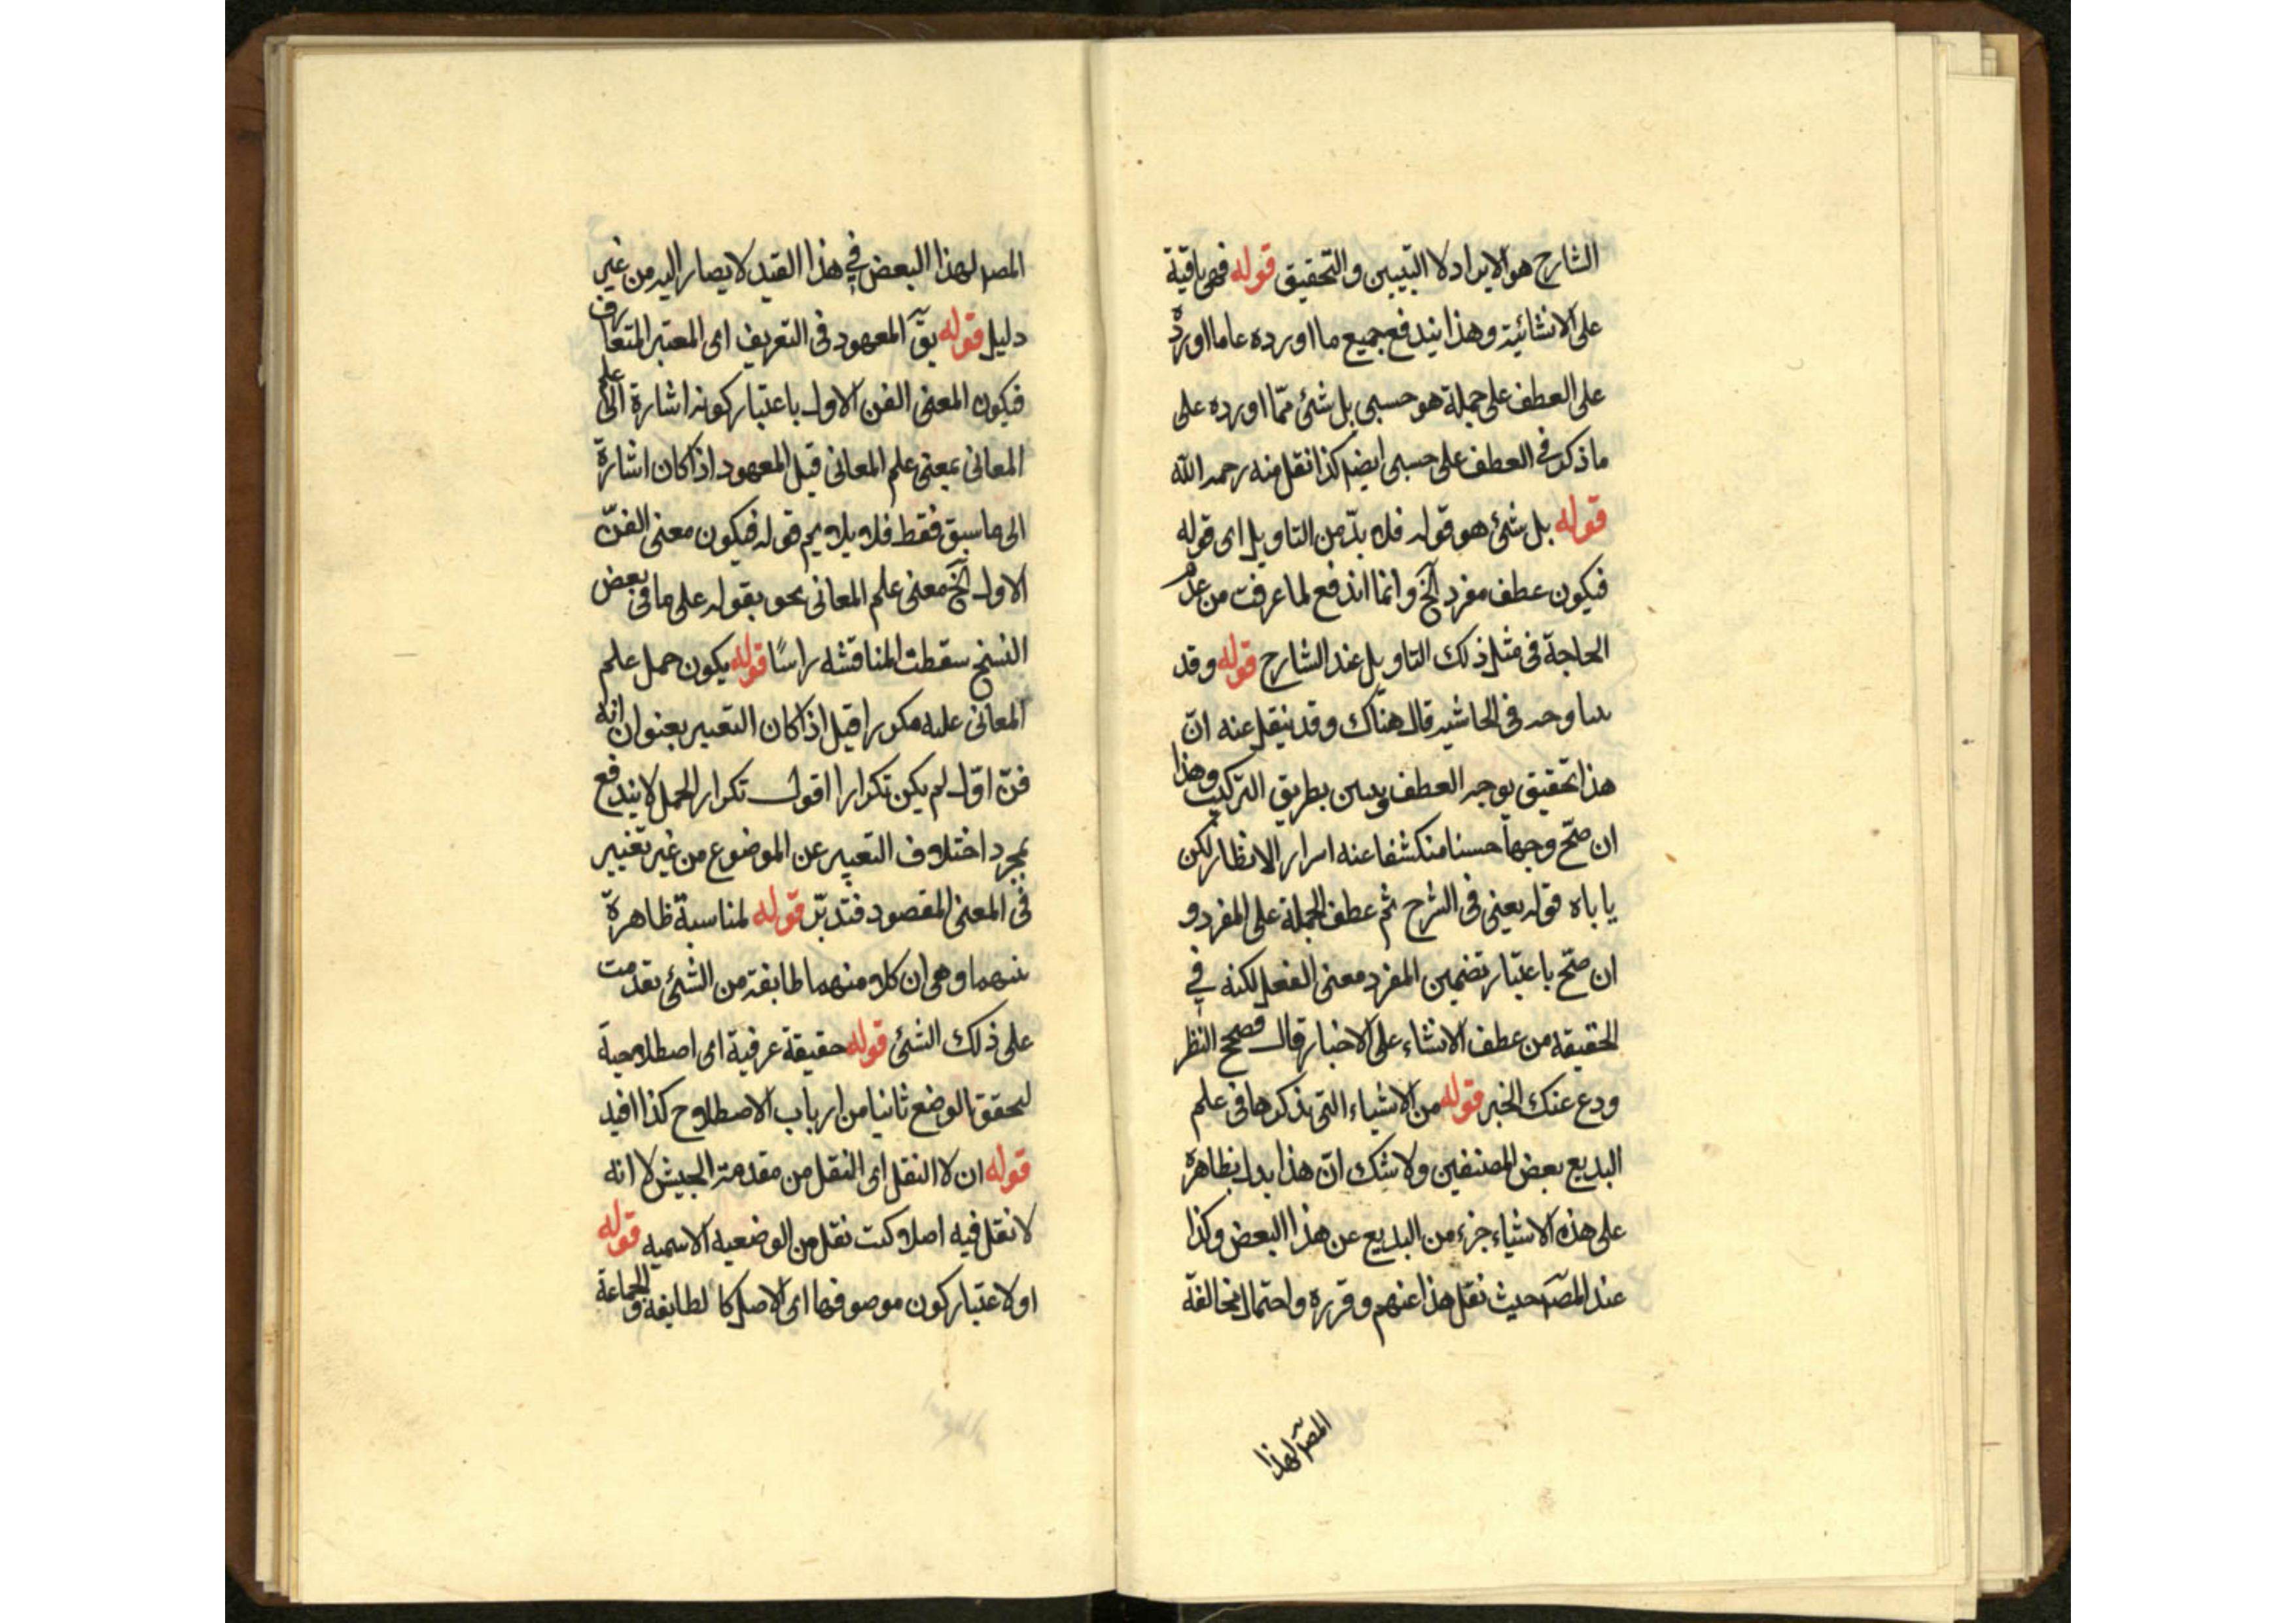 الشارح هو الايراد لا التبيين والتحقيق قوله فهى باقية
على الانشائية وهذا يندفع جميع ما اورده عاما اورده
على العطف على جملة هو حسبى بل شئ ممّا اورده على
ما ذكر فى العطف على حسبى ايضا كذا نقل منه رحمه الله
قوله بل شئ هو قوله فلا بدّ من التاويل اى قوله
فيكون عطف مفرد الخ وانما اندفع لما عرفت من عدم
الحاجة فى مثل ذلك التاويل عند الشارح قوله وقد
فى الحاشيه قال هناك وقد ينقل عنه انّ
هذا تحقيق يوجه العطف بطريق التركيب وهذا
ان صحّ وجها حسنا منكشفا عنه اسرار الانظار لكن
ياباه قوله يعنى فى الشرح ثم عطف الجملة على المفرد و
ان صحّ باعتبار تضمين المفرد معنى الفعل لكنه في
الحقيقه من عطف الانشاء على الاخبار قال فصحح النظر
ودع عنك الخبر قوله من الاشياء التى يذكرها فى علم
البديع بعض المصنفين ولا شك انّ هذا يدل بظاهره
على هذه الاشياء جزء من البديع عن هذا البعض وكذا
عند المصّ حيث نقل هذا عنهم وقرره واحتمال مخالفة
المصّ لهذا
المصّ لهذا البعض في هذا القيد لا يصار اليه من غير
دليل قوله بقّ المعهود فى التعريف اى المعتبر المتعارف
فيكون المعنى الفن الاول باعتبار كونه اشارة الى علم
المعانى بمعنى علم المعانى قبل المعهود اذا كان اشارة
الى ما سبق فقط فلا يلايم قوله فيكون معنى الفنّ
الاول الخ معنى علم المعانى نحو يقول على ما فى بعض
النسخ سقطت المناقشه راسًا قوله يكون حمل علم
المعانى عليه مكررا قيل اذا كان التعبير بعنوان انه
فنّ اوّل لم يكن تكرارا اقول تكرار الحمل لا يندفع
بمجرد اختلاف التعبير عن الموضوع من غير تغيير
فى المعنى المقصود فتدبّر قوله لمناسبة ظاهرة
بينهما وهى ان كلا منهما طايفة من الشئ تقدمت
على ذلك الشئ قوله حقيقة عرفية اى اصطلاحية
لتحقق الوضع ثانيا من ارباب الاصطلاح كذا افيد
قوله ان لا النقل اى النقل من مقدمة الجيش لا انه
لا نقل فيه اصلا كيف نقل من الوضعيه الاسميه قوله
او لاعتبار كون موصوفها اى الاصل كالطايفة والجماعة